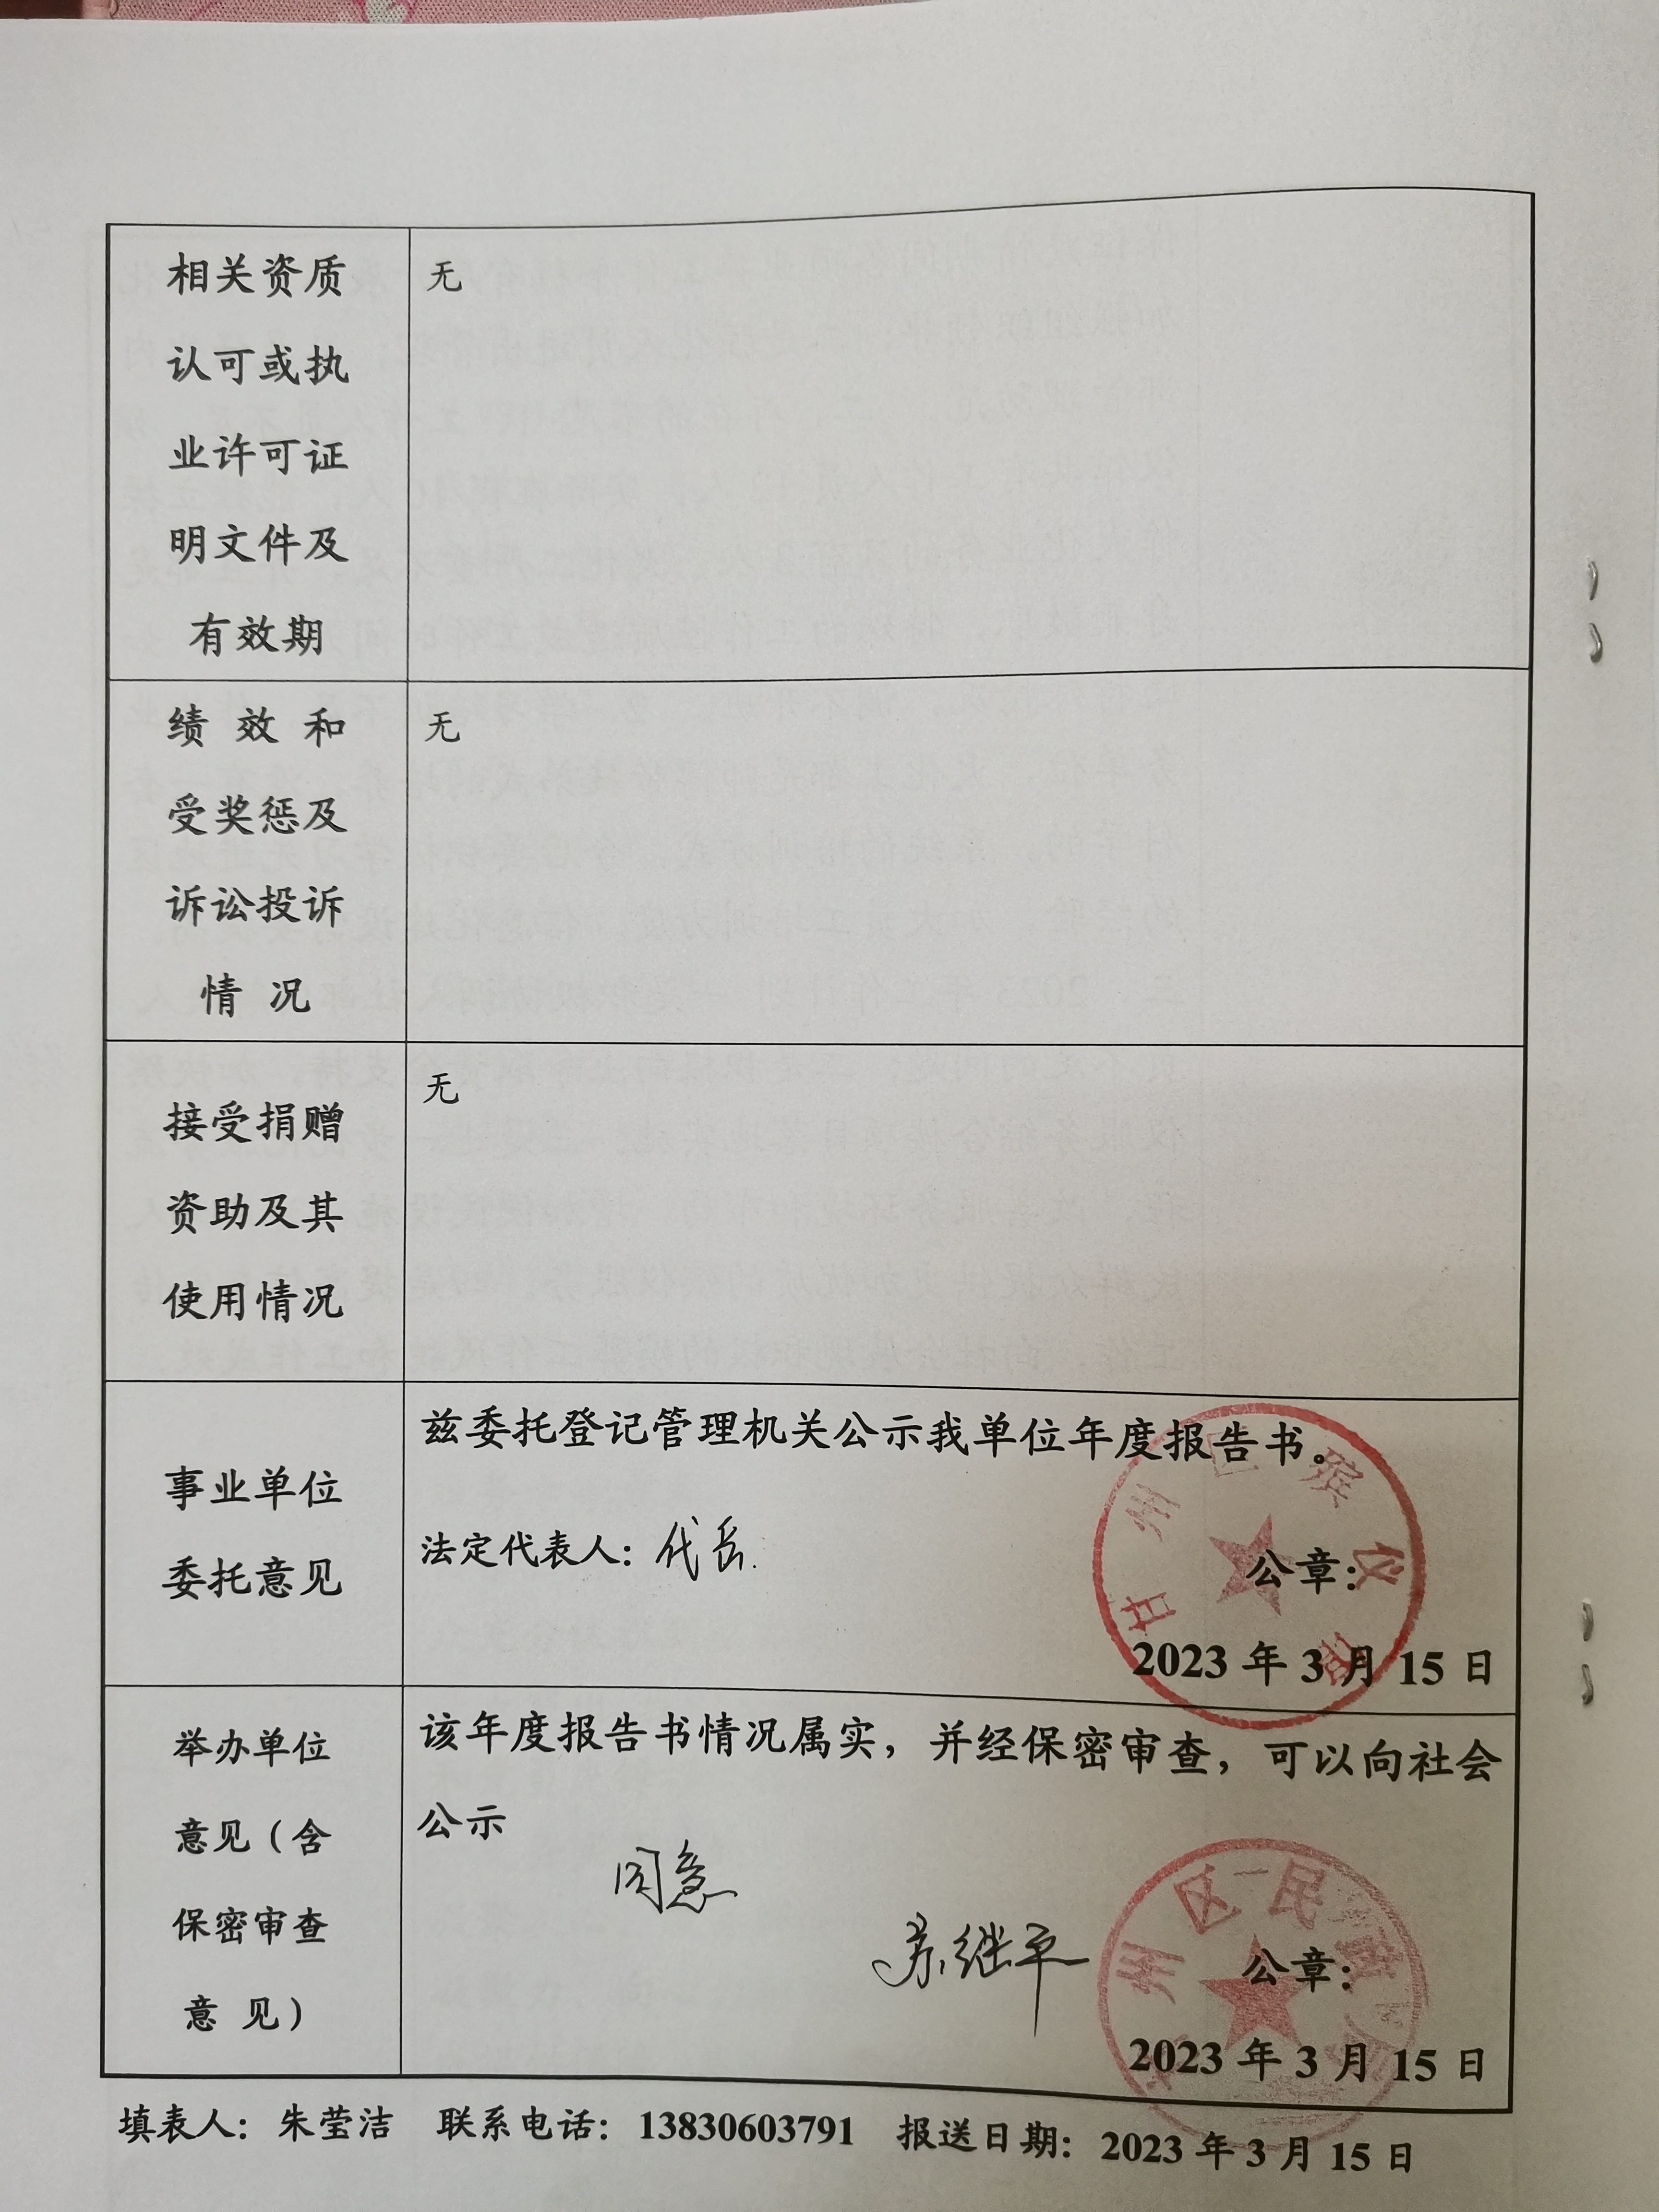 相关资质
认可或执
业许可证
明文件及
有效期
无
绩 效 和
受奖惩及
诉讼投诉
情 况
无
接受捐赠
资助及其
使用情况
无
事业单位
委托意见
兹委托登记管理机关公示我单位年度报告书。
法定代表人：代兵
公章：
甘州区殡仪馆
2023 年 3 月 15 日
举办单位
意见（含
保密审查
意 见）
该年度报告书情况属实，并经保密审查，可以向社会
公示
同意
苏继平
公章：
州区民政
2023 年 3 月 15 日
填表人：朱莹洁 联系电话：13830603791 报送日期：2023 年 3 月 15 日